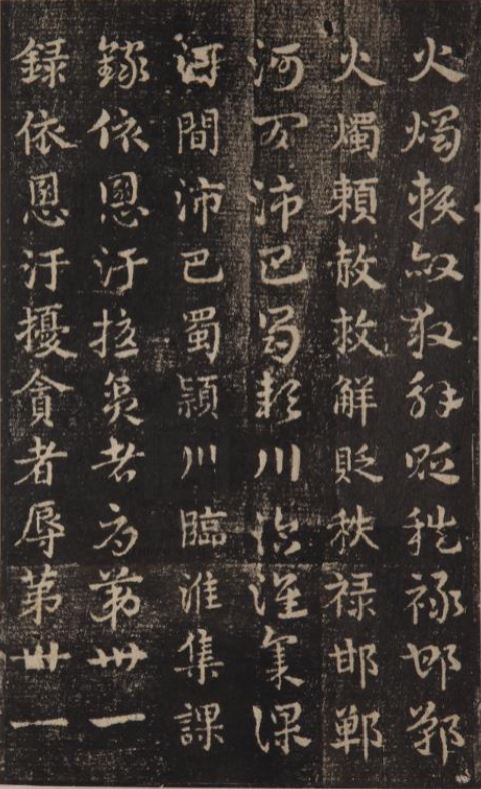 火燭頼赦救解貶秩禄邯鄲
火燭頼赦救解貶秩禄邯鄲
河間沛巴蜀潁川臨淮集課
河間沛巴蜀潁川臨淮集課
録依恩汙擾貪者辱苐卅一
録依恩汙擾貪者辱苐卅一